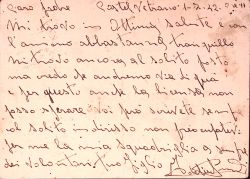 Caro padre Castel Vetrano 1-3-42
Mi trovo in Ottima salute e con
l'animo abbastanza tranquillo
mi trovo ancora al solito posto
ma vedo se andremo via di quà
e per questo anche la licenza non
posso sperare voi però scrivete sempre
al solito indirizzo non preoccupatevi
per me la mia Squadriglia è sempre
tuo figlio